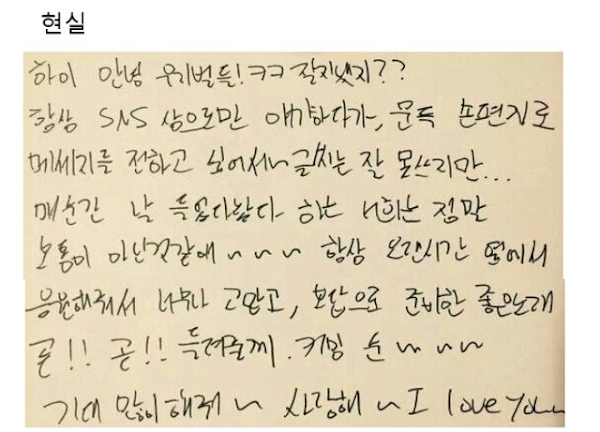 현실
하이 안녕 우리벌들! ㅋㅋ 잘지냈지??
항상 SNS 상으로만 얘기하다가, 문득 손편지로
메세지를 전하고 싶어서~ 글씨는 잘 못쓰지만...
매순간 날 들었다놨다 하는 너희는 정말
보통이 아닌것같애 ~ ~ ~ 항상 오랜시간 옆에서
응원해줘서 너무나 고맙고, 보답으로 준비한 좋은노래
곧!! 곧!! 들려줄께. 커밍 순 ~ ~ ~
기대 많이 해줘 ~ 사랑해 ~ I love you~